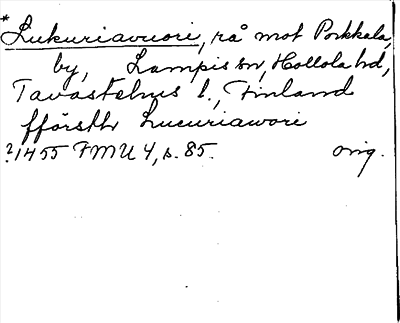 * Lukuriavuori, rå mot Porkkala
by, Lampis sn, Hollola hd,
Tavastehus l., Finland
fförsthr Lucuriawori
?1455 FMU 4, s. 85. orig.